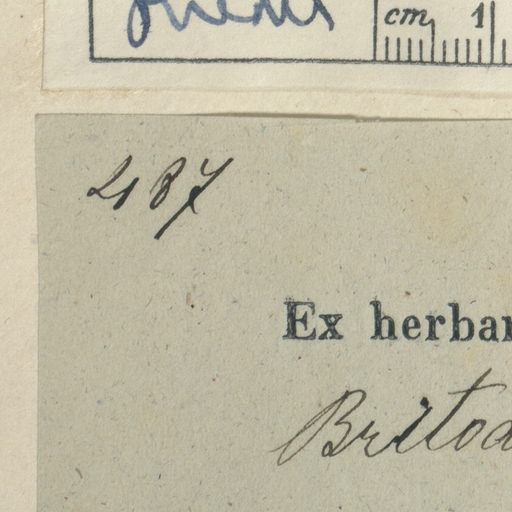 cm 1
487
Ex herbar
Britoa